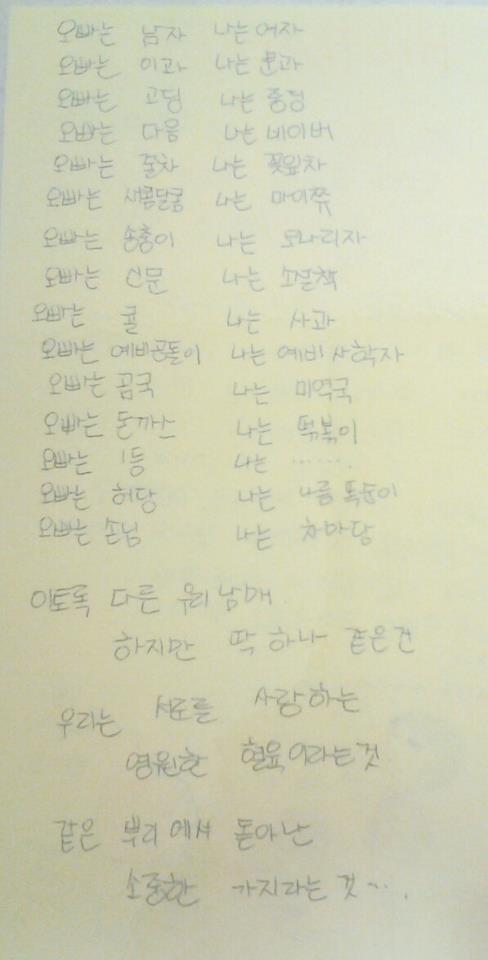 오빠는 남자 나는 여자
오빠는 이과 나는 문과
오빠는 고딩 나는 중딩
오빠는 다음 나는 네이버
오빠는 홍차 나는 꽃잎차
오빠는 새콤달콤 나는 마이쮸
오빠는 송충이 나는 모나리자
오빠는 신문 나는 소설책
오빠는 귤 나는 사과
오빠는 예비공돌이 나는 예비 사학자
오빠는 곰국 나는 미역국
오빠는 돈까스 나는 떡볶이
오빠는 1등 나는 …….
오빠는 허당 나는 나름 똑순이
오빠는 손님 나는
이토록 다른 우리 남매
하지만 딱 하나 같은건
우리는 서로를 사랑하는
영원한 혈육이라는것
같은 뿌리에서 돋아난
소중한 가지라는 것….